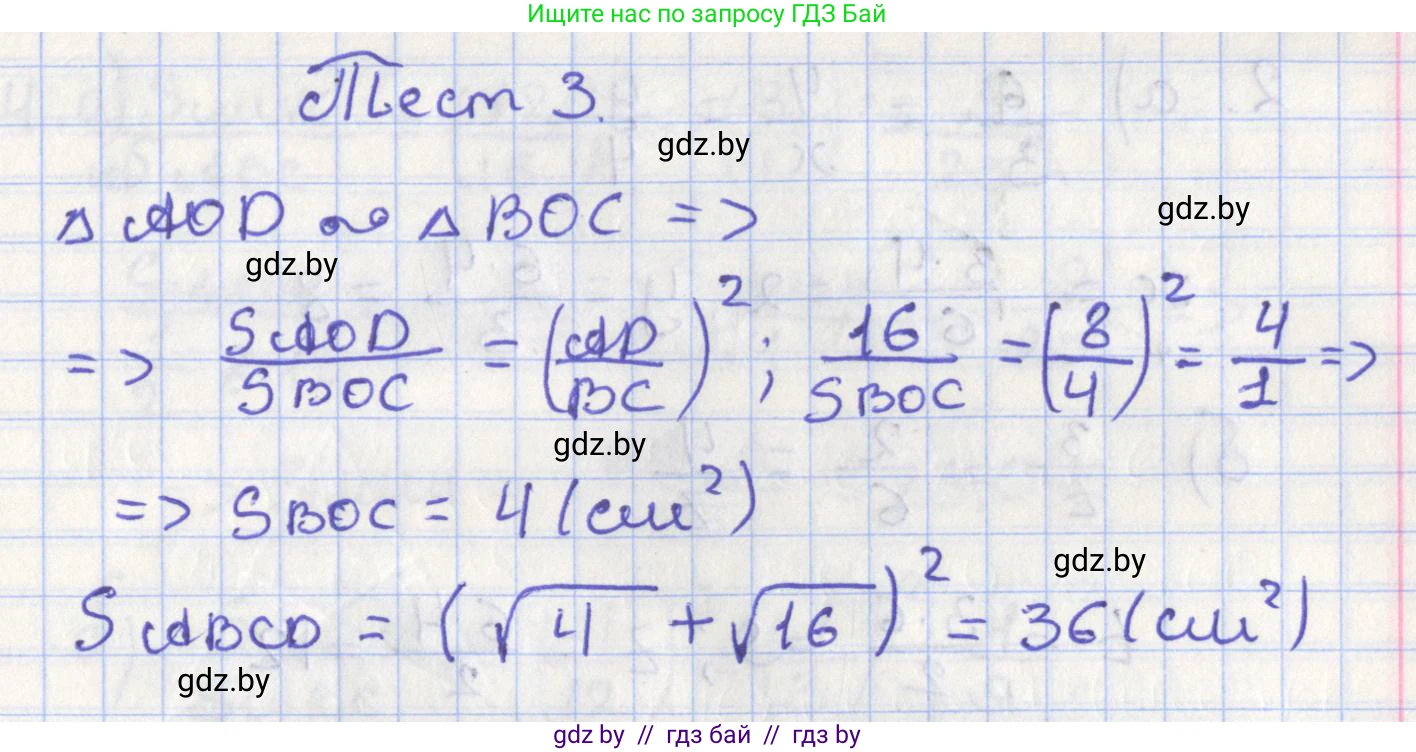 Ищите нас по запросу ГДЗ Бай
Тест 3.
gdz.by
△ AOD ∾ △ BOC =>
gdz.by
gdz.by
=> SAOD/SBOC = (AD/BC)²; 16/SBOC = (8/4)² = 4/1 =>
gdz.by
=> SBOC = 4 (см²)
gdz.by
SABCD = (√4 + √16)² = 36 (см²)
gdz.by
gdz by // гдз бай // гдз by